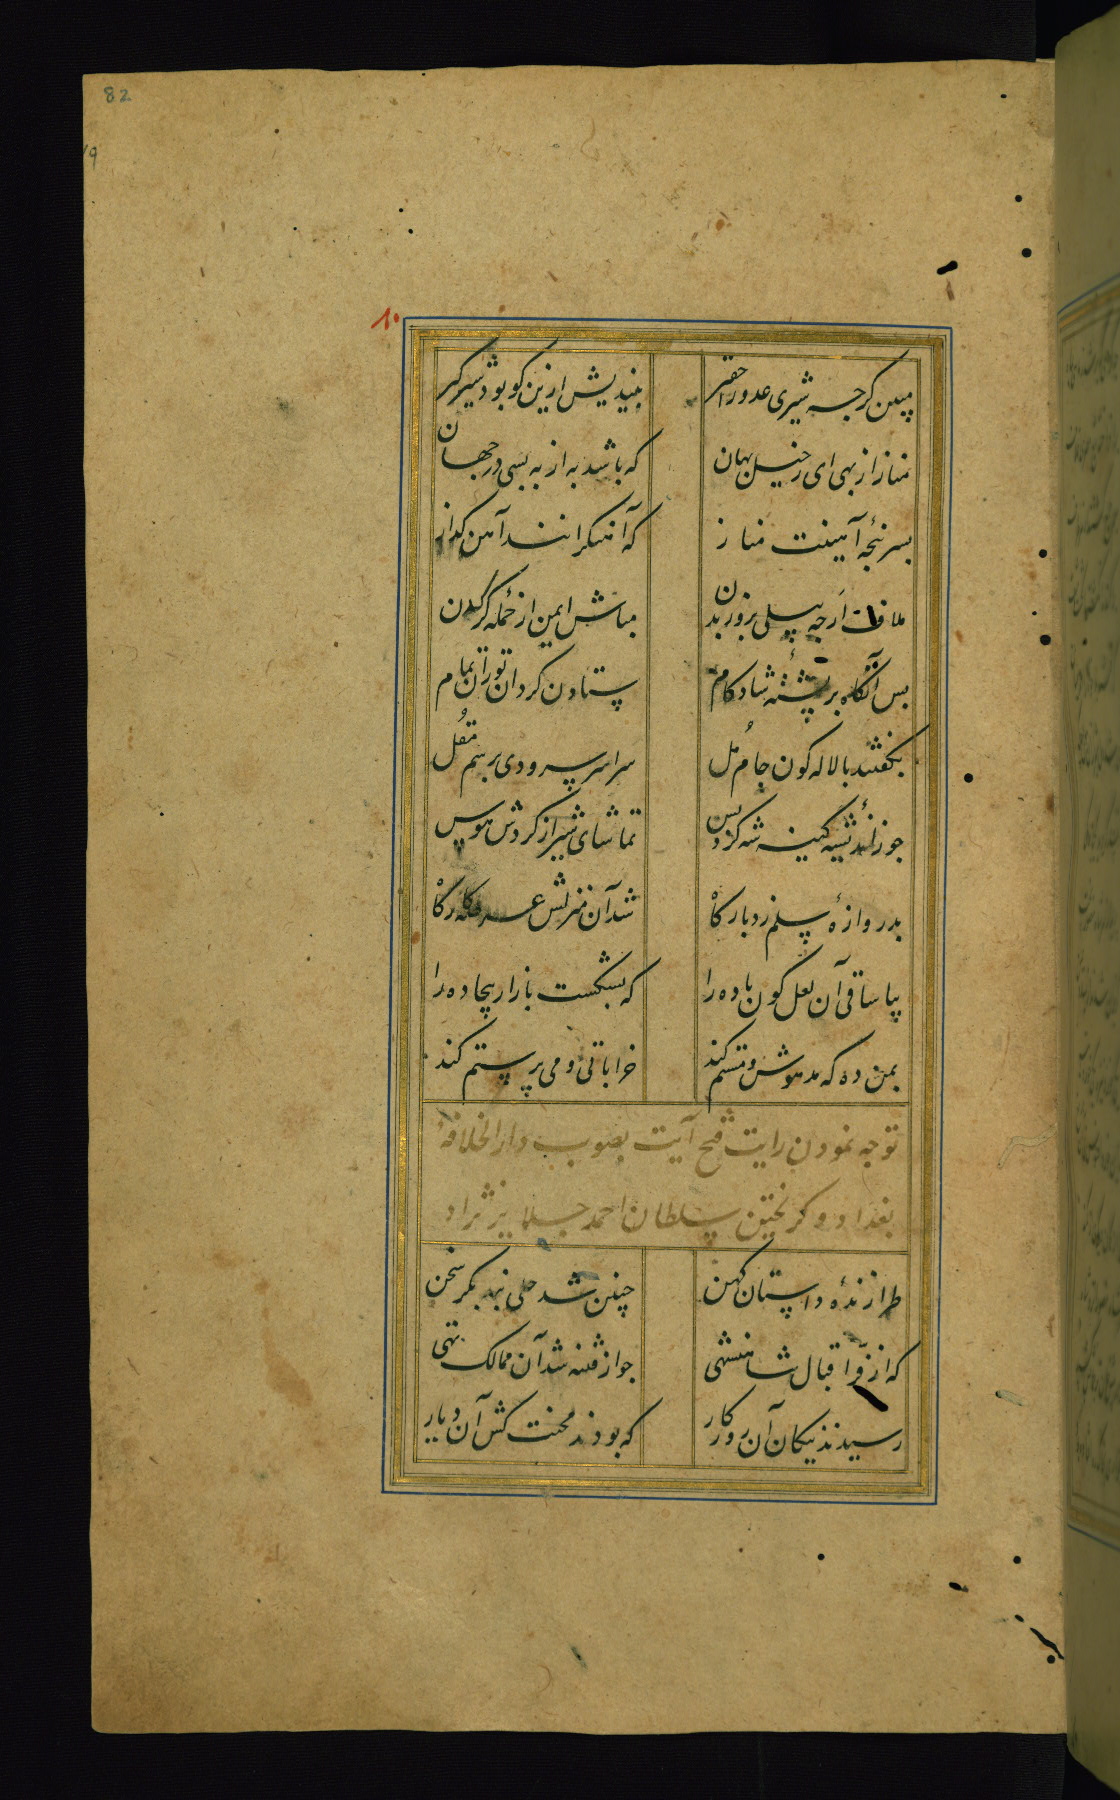 82
۸۰
مبین گرچه شیری عدو را حقیر بیندیش ازین کو بود شیرگیر
مناز از بهی ای رخیل بهان که باشد به از به بسی در جهان
بسرپنجه آهینت مناز که آهنگرانند آهن گداز
ملاف ارچه پیلی بزور بدن مباش ایمن از حمله کرگدن
پس آنگاه بر پشته شادکام ستادن گردان توران تمام
بگفتند با لاله گون جام مل سراسر سرودی برسم مغل
جو شه کزو پس تماشای شیراز کردش هوس
بدروازه سلم زد بارگاه شد آن منزلش
بیا ساقی آن لعل گون باده را که بشکست بازار بیجاده را
بمن ده که مدهوش و مستم کند خراباتی و می پرستم کند
توجه نمودن رایت فتح آیت بصوب دار الخلافهٔ
بغداد و گریختن سلطان احمد جلایر نژاد
طرازندهٔ داستان کهن چنین شد حلی بند بکر سخن
که از فر اقبال شاهنشهی جو از فتنه شد آن ممالک تهی
رسیدند نیکان آن روزکار که بودند محنت کش آن دیار